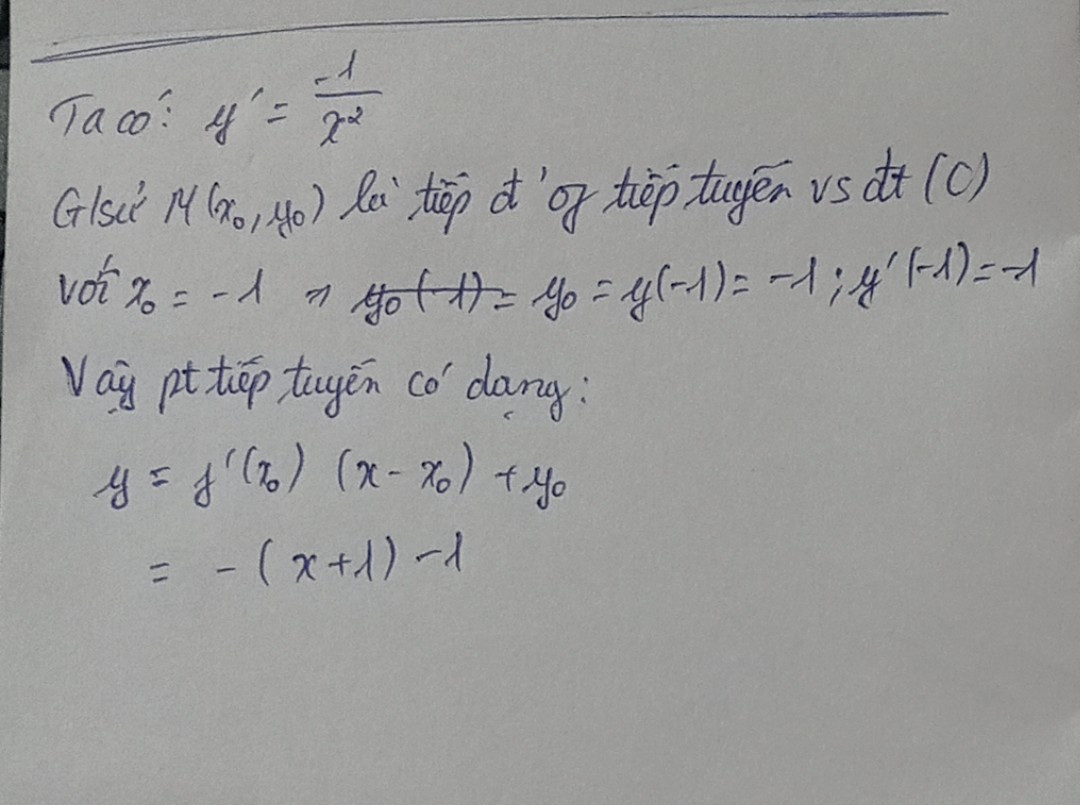 Ta có: y' = -1/x²
G/sử M(x₀, y₀) là tiếp đ' of tiếp tuyến vs đt (C)
với x₀ = -1 ⇒ ~~y₀(-1)=~~ y₀ = y(-1) = -1 ; y'(-1) = -1
Vậy pt tiếp tuyến có dạng:
y = y'(x₀) (x - x₀) + y₀
= -(x+1) -1